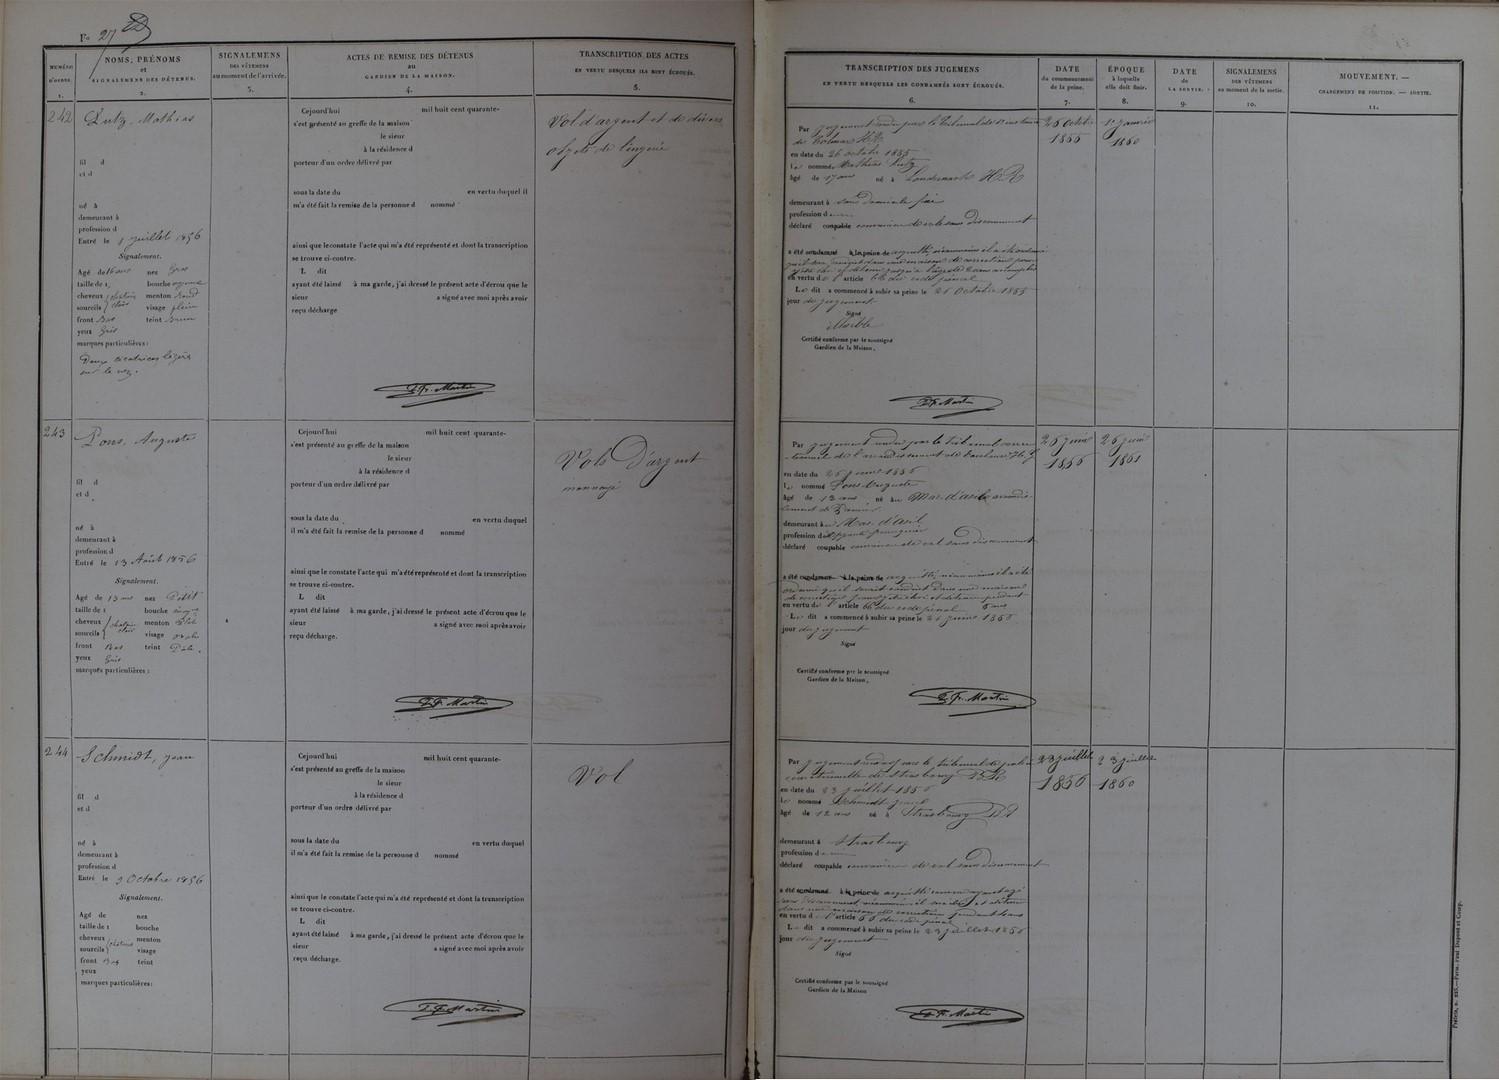 F° 27
NUMÉRO D'ORDRE. 1.
NOMS, PRÉNOMS et SIGNALEMENS DES DÉTENUS. 2.
SIGNALEMENS DES VÊTEMENS au moment de l'arrivée. 3.
ACTES DE REMISE DES DÉTENUS au GARDIEN DE LA MAISON. 4.
TRANSCRIPTION DES ACTES EN VERTU DESQUELS ILS SONT ÉCROUÉS. 5.
TRANSCRIPTION DES JUGEMENS EN VERTU DESQUELS LES CONDAMNÉS SONT ÉCROUÉS. 6.
DATE du commencement de la peine. 7.
ÉPOQUE à laquelle elle doit finir. 8.
DATE de LA SORTIE. 9.
SIGNALEMENS DES VÊTEMENS au moment de la sortie. 10.
MOUVEMENT. — CHANGEMENT DE POSITION. — SORTIE. 11.
242
Lutz, Mathias
fil d
et d
né à
demeurant à
profession d
Entré le 1 juillet 1856
Signalement.
Agé de 16 ans nez Gros
taille de 1, bouche moyenne
cheveux châtain menton rond
sourcils clair visage plein
front Bas teint Brun
yeux Gris
marques particulières :
Deux cicatrices légères
sur le nez.
Cejourd'hui mil huit cent quarante-
s'est présenté au greffe de la maison
le sieur
à la résidence d
porteur d'un ordre délivré par
sous la date du en vertu duquel il
m'a été fait la remise de la personne d nommé
ainsi que le constate l'acte qui m'a été représenté et dont la transcription
se trouve ci-contre.
L dit
ayant été laissé à ma garde, j'ai dressé le présent acte d'écrou que le
sieur a signé avec moi après avoir
reçu décharge
Martin
Vol d'argent et de divers
objets de lingerie
Par jugement rendu par le Tribunal de
de Colmar H.R.
en date du 26 octobre 1855
Le nommé Mathias Lutz
âgé de 17 ans né à H R
demeurant à sans domicile fixe
profession d
déclaré coupable convaincu de vol sans discernement
a été condamné à la peine de acquitté, néanmoins il a été ordonné
qu'il sera conduit dans une maison de correction pour
y être élevé et détenu jusqu'à l'âge de ans accomplis
en vertu de l'article 66 du code pénal
Le dit a commencé à subir sa peine le 26 Octobre 1855
jour du jugement
Signé
Certifié conforme par le soussigné
Gardien de la Maison,
Martin
26 octobre
1855
1er janvier
1860
243
Pons, Auguste
fil d
et d
né à
demeurant à
profession d
Entré le 13 Août 1856
Signalement.
Agé de 13 ans nez Petit
taille de 1 bouche moyenne
cheveux châtain menton
sourcils clair visage ovale
front Bas teint Pâle.
yeux Gris
marques particulières :
Cejourd'hui mil huit cent quarante-
s'est présenté au greffe de la maison
le sieur
à la résidence d
porteur d'un ordre délivré par
sous la date du en vertu duquel
il m'a été fait la remise de la personne d nommé
ainsi que le constate l'acte qui m'a été représenté et dont la transcription
se trouve ci-contre.
L dit
ayant été laissé à ma garde, j'ai dressé le présent acte d'écrou que le
sieur a signé avec moi après avoir
reçu décharge.
Martin
Vols D'argent
monnayé
Par jugement rendu par le Tribunal correc
-tionnel de l'arrondissement de Toulouse H.G.
en date du 26 juin 1856
Le nommé Pons Auguste
âgé de 12 ans, né au Mas-d'asile arrondis-
-sement de Pamiers
demeurant à Mas-d'asil
profession d
déclaré coupable convaincu de vol sans discernement
a été condamné à la peine de acquitté, néanmoins il a été
ordonné qu'il serait conduit dans une maison
de correction pour y être élevé et détenu pendant
en vertu de l'article 66 du code pénal 5 ans
Le dit a commencé à subir sa peine le 26 juin 1856
jour du jugement
Signé
Certifié conforme par le soussigné
Gardien de la Maison,
Martin
26 juin
1856
26 juin
1861
244
Schmidt, jean
fil d
et d
né à
demeurant à
profession d
Entré le 9 Octobre 1856
Signalement.
Agé de nez
taille de 1 bouche
cheveux châtains menton
sourcils visage
front Bas teint
yeux
marques particulières:
Cejourd'hui mil huit cent quarante-
s'est présenté au greffe de la maison
le sieur
à la résidence d
porteur d'un ordre délivré par
sous la date du en vertu duquel
il m'a été fait la remise de la personne d nommé
ainsi que le constate l'acte qui m'a été représenté et dont la transcription
se trouve ci-contre.
L dit
ayant été laissé à ma garde, j'ai dressé le présent acte d'écrou que le
sieur a signé avec moi après avoir
reçu décharge.
Martin
Vol
Par jugement rendu par le tribunal de police
correctionnelle de Strasbourg B.R.
en date du 23 juillet 1856
Le nommé Schmidt jean
âgé de 12 ans né à Strasbourg B R
demeurant à Strasbourg
profession d
déclaré coupable convaincu de vol sans discernement
a été condamné à la peine de acquitté comme ayant agi
sans discernement, néanmoins il sera élevé et détenu
dans une maison de correction pendant 4 ans
en vertu de l'article 66 du code pénal
Le dit a commencé à subir sa peine le 23 juillet 1856
jour du jugement
Signé
Certifié conforme par le soussigné
Gardien de la Maison
Martin
23 juillet
1856
23 juillet
1860
Paris. — Paul Dupont et Comp.